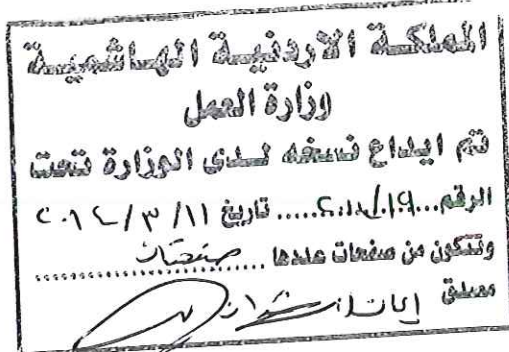 المملكة الاردنية الهاشمية
وزارة العمل
تم ايداع نسخه لدى الوزارة تحت
الرقم ......... تاريخ ١١/ ٣/ ٢٠١٤
وتتكون من صفحات عددها صفحتان
مصدق